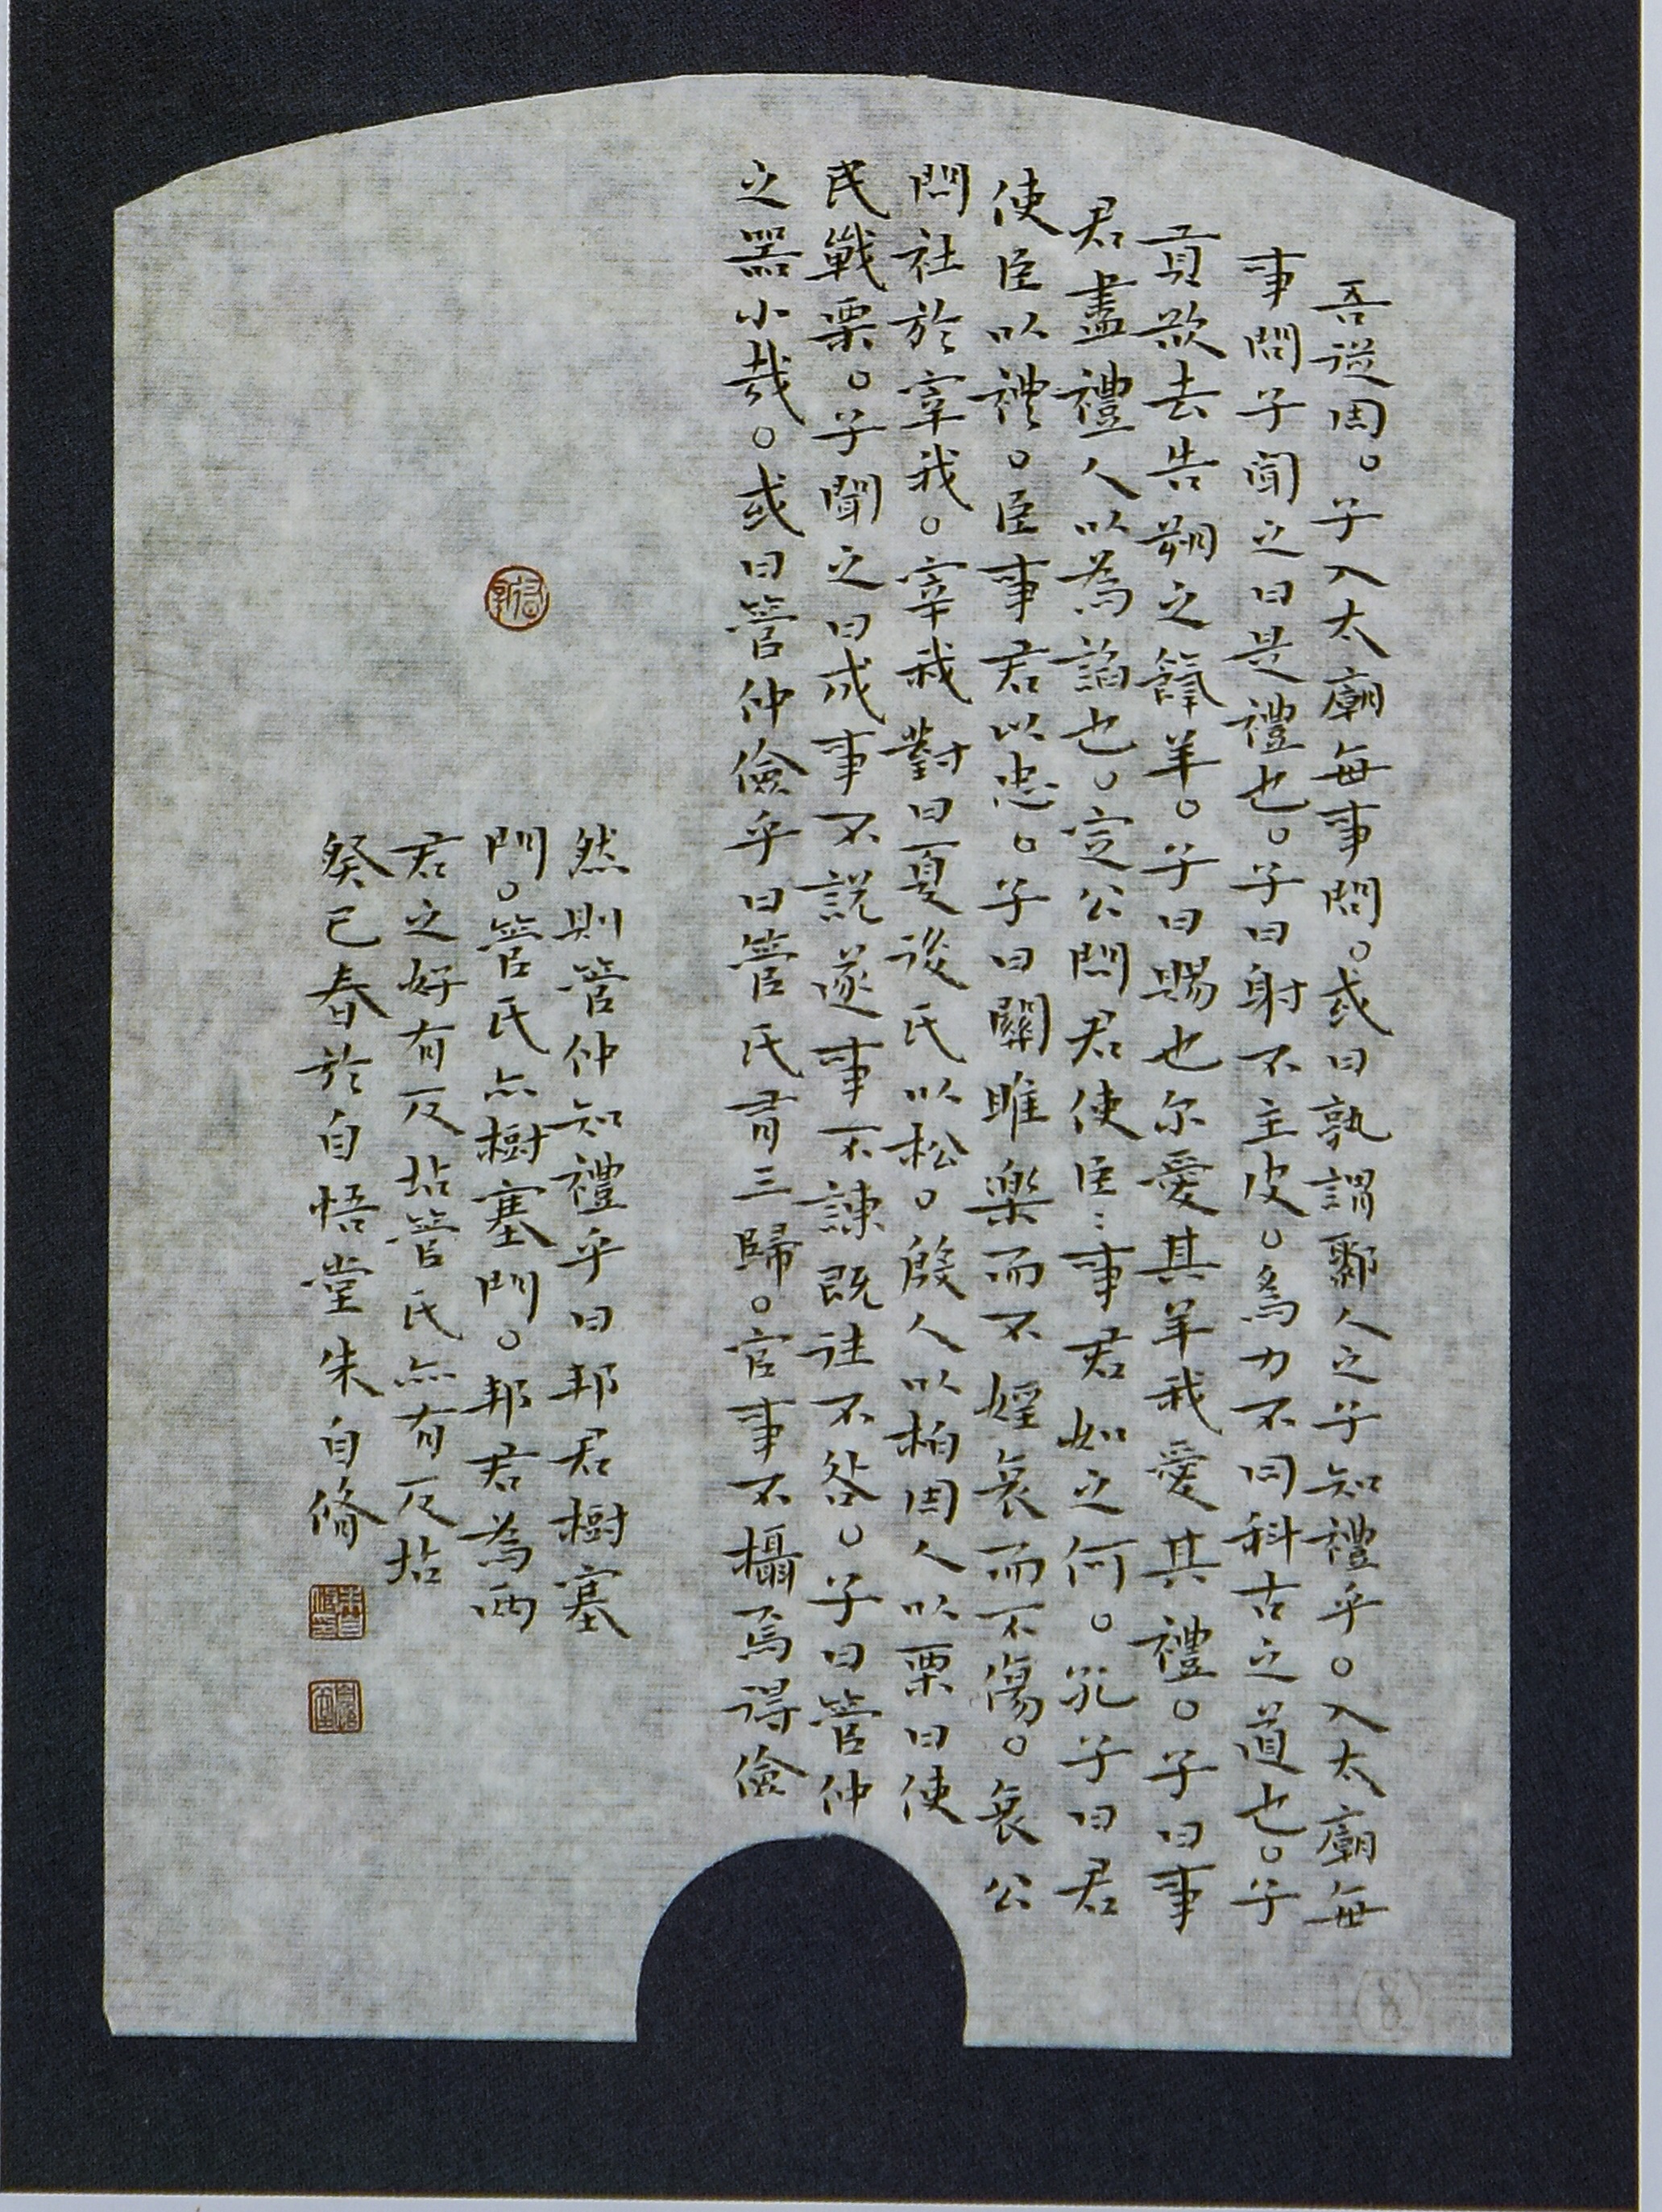 吾從周。子入太廟每事問。或曰孰謂鄹人之子知禮乎。入太廟每
事問子聞之曰是禮也。子曰射不主皮。為力不同科古之道也。子
貢欲去告朔之餼羊。子曰賜也尔愛其羊我愛其禮。子曰事
君盡禮人以為諂也。定公問君使臣:事君如之何。孔子曰君
使臣以禮。臣事君以忠。子曰關雎樂而不婬哀而不傷。哀公
問社於宰我。宰我對曰夏後氏以松。殷人以柏周人以栗曰使
民戰栗。子聞之曰成事不説遂事不諫既往不咎。子曰管仲
之器小哉。或曰管仲儉乎曰管氏有三歸。官事不攝焉得儉
然則管仲知禮乎曰邦君樹塞
門。管氏亦樹塞門。邦君為兩
君之好有反坫管氏亦有反坫
癸巳春於自悟堂朱自脩